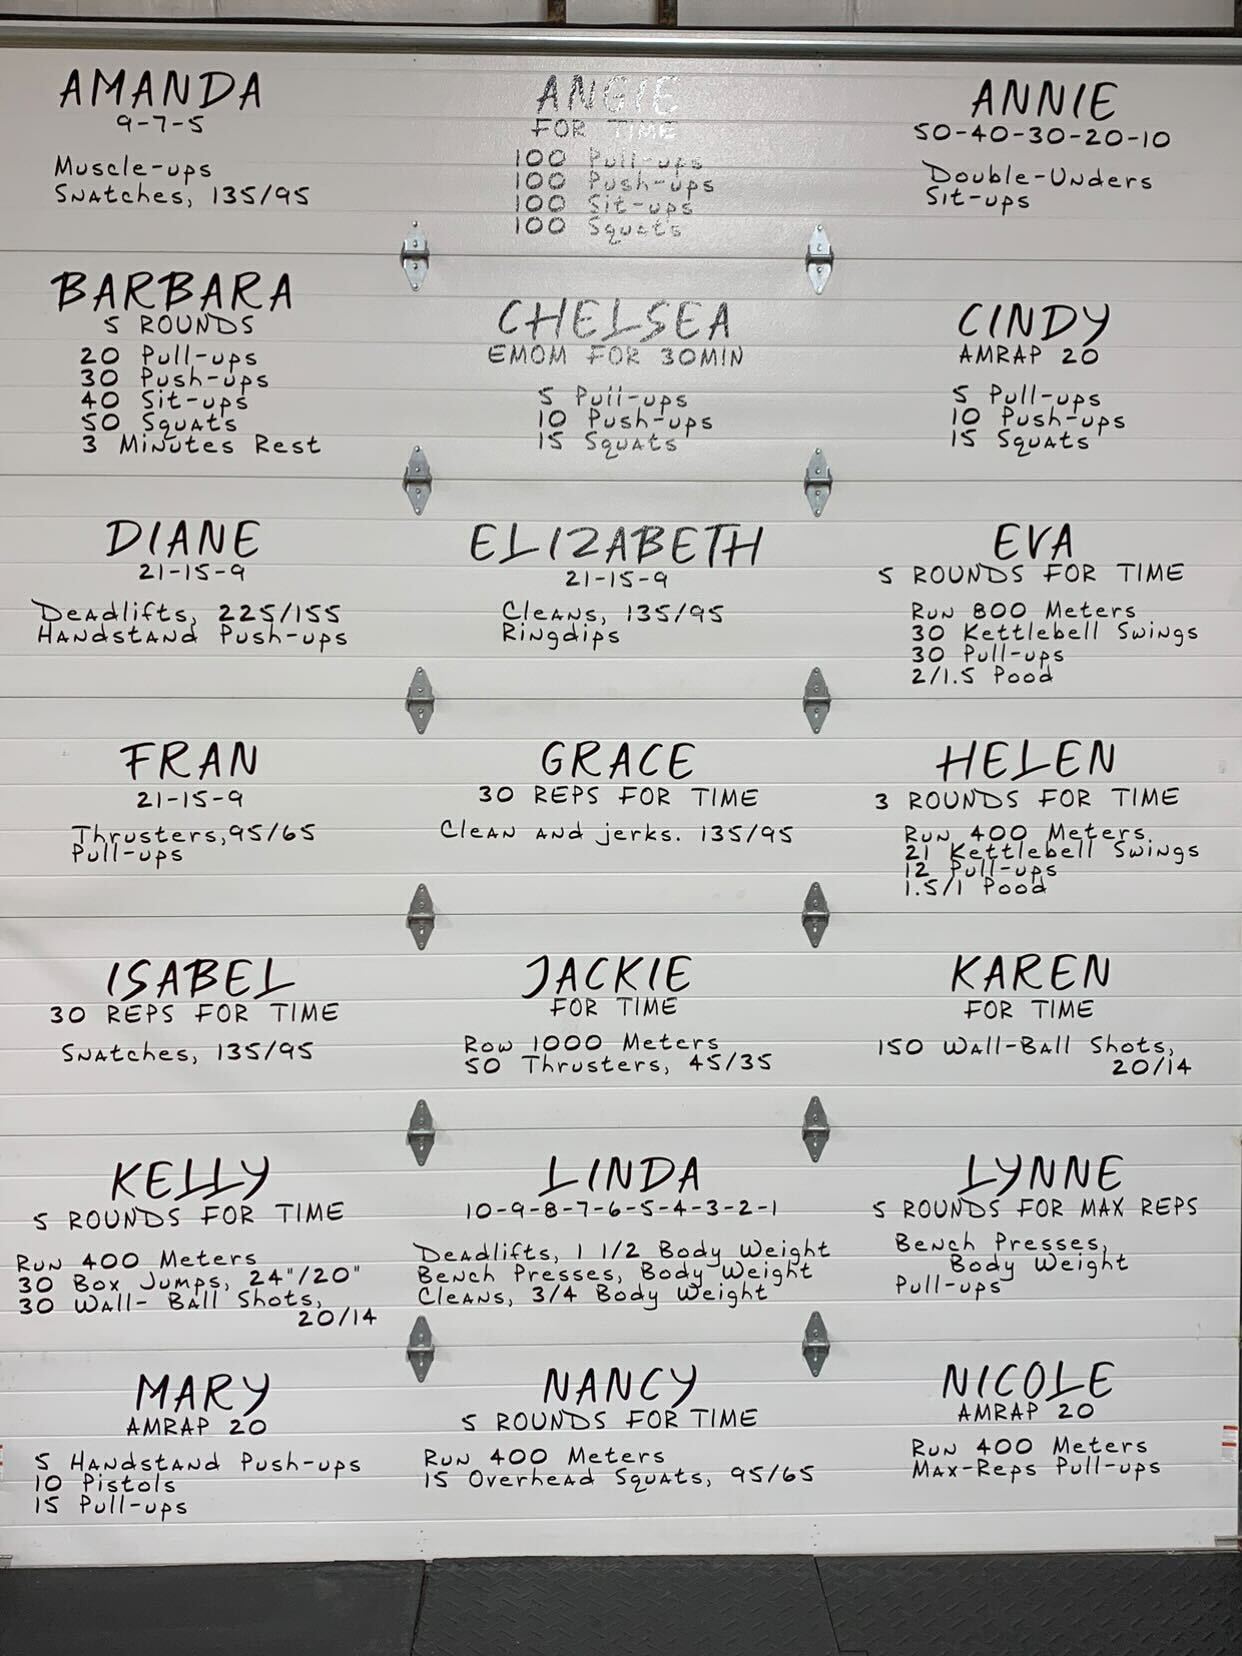 AMANDA
9-7-5
Muscle-ups
Snatches, 135/95
ANGIE
FOR TIME
100 Pull-ups
100 Push-ups
100 Sit-ups
100 Squats
ANNIE
50-40-30-20-10
Double-Unders
Sit-ups
BARBARA
5 ROUNDS
20 Pull-ups
30 Push-ups
40 Sit-ups
50 Squats
3 Minutes Rest
CHELSEA
EMOM FOR 30MIN
5 Pull-ups
10 Push-ups
15 Squats
CINDY
AMRAP 20
5 Pull-ups
10 Push-ups
15 Squats
DIANE
21-15-9
Deadlifts, 225/155
Handstand Push-ups
ELIZABETH
21-15-9
Cleans, 135/95
Ringdips
EVA
5 ROUNDS FOR TIME
Run 800 Meters
30 Kettlebell Swings
30 Pull-ups
2/1.5 Pood
FRAN
21-15-9
Thrusters,95/65
Pull-ups
GRACE
30 REPS FOR TIME
Clean and jerks. 135/95
HELEN
3 ROUNDS FOR TIME
Run 400 Meters
21 Kettlebell Swings
12 Pull-ups
1.5/1 Pood
ISABEL
30 REPS FOR TIME
Snatches, 135/95
JACKIE
FOR TIME
Row 1000 Meters
50 Thrusters, 45/35
KAREN
FOR TIME
150 Wall-Ball Shots,
20/14
KELLY
5 ROUNDS FOR TIME
Run 400 Meters
30 Box Jumps, 24"/20"
30 Wall- Ball Shots,
20/14
LINDA
10-9-8-7-6-5-4-3-2-1
Deadlifts, 1 1/2 Body Weight
Bench Presses, Body Weight
Cleans, 3/4 Body Weight
LYNNE
5 ROUNDS FOR MAX REPS
Bench Presses,
Body Weight
Pull-ups
MARY
AMRAP 20
5 Handstand Push-ups
10 Pistols
15 Pull-ups
NANCY
5 ROUNDS FOR TIME
Run 400 Meters
15 Overhead Squats, 95/65
NICOLE
AMRAP 20
Run 400 Meters
Max-Reps Pull-ups